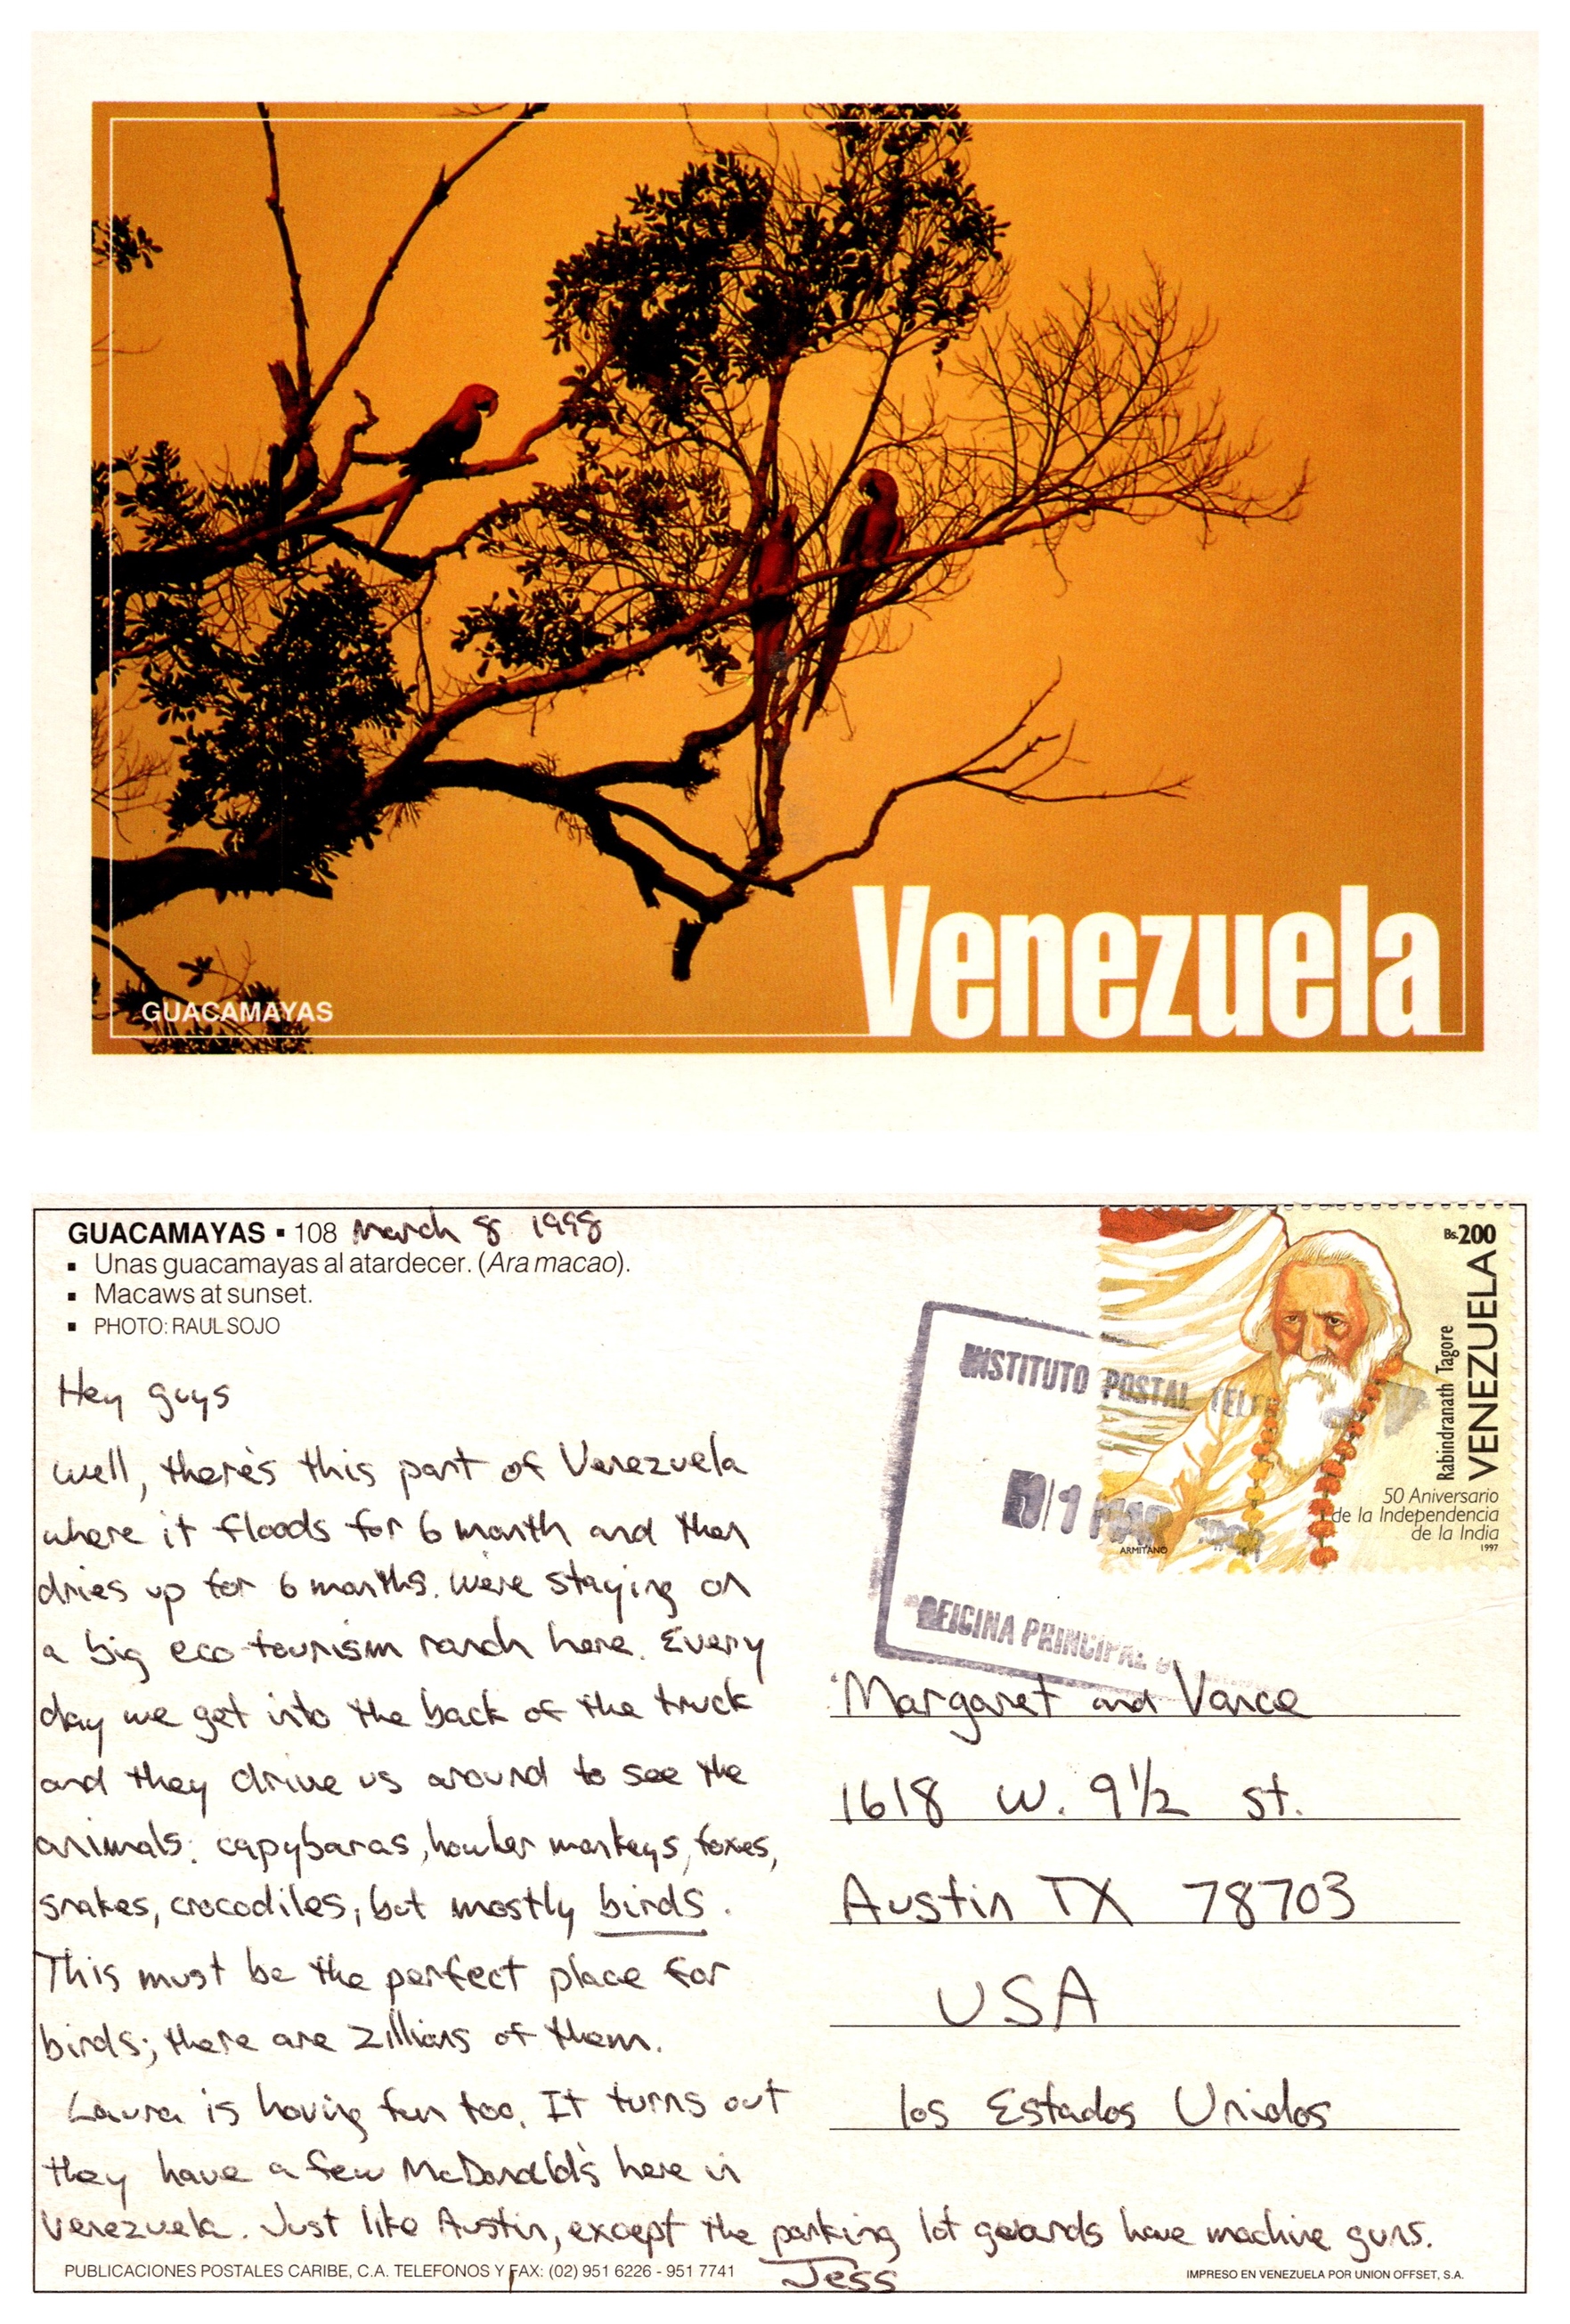 Venezuela
GUACAMAYAS
GUACAMAYAS ▪ 108 March 8 1998
▪ Unas guacamayas al atardecer. (Ara macao).
▪ Macaws at sunset.
▪ PHOTO: RAUL SOJO
Bs. 200
VENEZUELA
Rabindranath Tagore
50 Aniversario
de la Independencia
de la India
1997
ARMITANO
INSTITUTO POSTAL
MAR
OFICINA PRINCIPAL
Hey guys
Well, there's this part of Venezuela
where it floods for 6 month and then
dries up for 6 months. We're staying on
a big eco tourism ranch here. Every
day we get into the back of the truck
and they drive us around to see the
animals: capybaras, howler monkeys, foxes,
snakes, crocodiles, but mostly birds.
This must be the perfect place for
birds; there are zillions of them.
Laura is having fun too. It turns out
they have a few McDonald's here in
Venezuela. Just like Austin, except the parking lot guards have machine guns.
Jess
Margaret and Vance
1618 W. 9 1/2 St.
Austin TX 78703
USA
los Estados Unidos
PUBLICACIONES POSTALES CARIBE, C.A. TELEFONOS Y FAX: (02) 951 6226 - 951 7741
IMPRESO EN VENEZUELA POR UNION OFFSET, S.A.